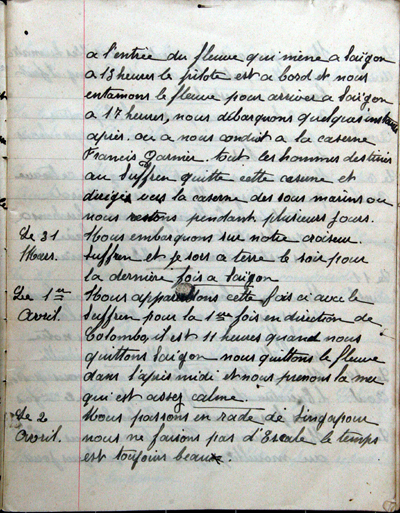 a l'entrée du fleuve qui mène a Saïgon
a 13 heures le pilote est a bord et nous
entamons le fleuve pour arriver a Saïgon
a 17 heures, nous débarquons quelques instants
après. on a nous conduit a la caserne
Francis Garnier. tout les hommes destinés
au Suffren quitte cette caserne et
dirigés vers la caserne des sous marins ou
nous restons pendant plusieurs jours.
Le 31 Nous embarquons sur notre croiseur
Mars. Suffren et je sors a terre le soir pour
la dernière fois a Saïgon
Le 1er Nous appareillons cette fois ci avec le
Avril. Suffren pour la 1ère fois en direction de
Colombo, il est 11 heures quand nous
quittons Saïgon nous quittons le fleuve
dans l'après midi et nous prenons la mer
qui est assez calme.
Le 2 Nous passons en rade de Singapour
Avril. nous ne faisons pas d'Escale le temps
est toujours beau.